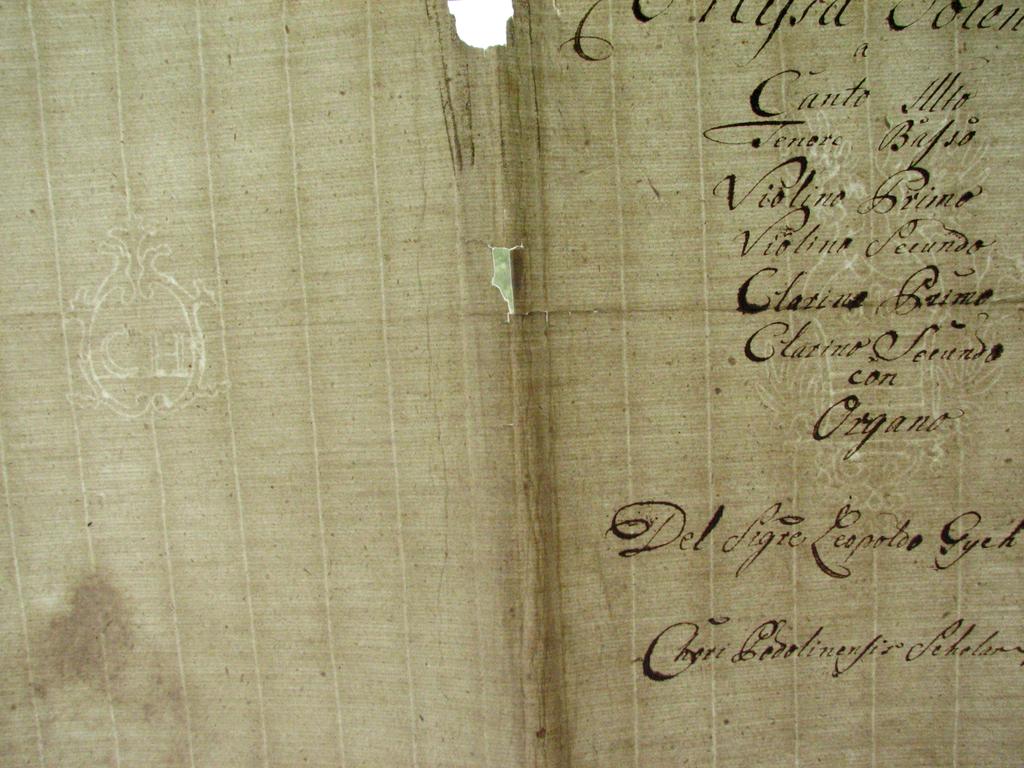 Missa Solen
a
Canto Alto
Tenore Basso
Violino Primo
Violino Secundo
Clarino Primo
Clarino Secundo
con
Organo
Del Sigre Leopoldo Gych
Chori Podolinensis Scholar
CH